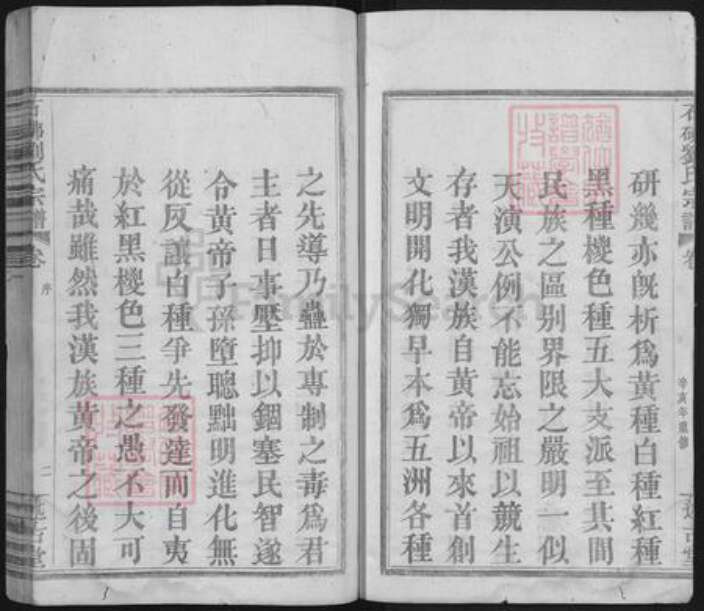 研幾亦旣析爲黃種白種紅種
黑種椶色種五大支派至其間
民族之區别界限之嚴明一似
天演公例不能忘始祖以競生
存者我漢族自黃帝以來首創
文明開化獨早本爲五洲各種
之先導乃蠱於專制之毒爲君
主者日事壓抑以錮塞民智遂
令黃帝子孫墮聰黜明進化無
從反讓白種爭先發達而自夷
於紅黑椶色三種之愚不大可
痛哉雖然我漢族黃帝之後固
劉氏宗譜
卷
序
二
辛亥年重修
FamilySearch